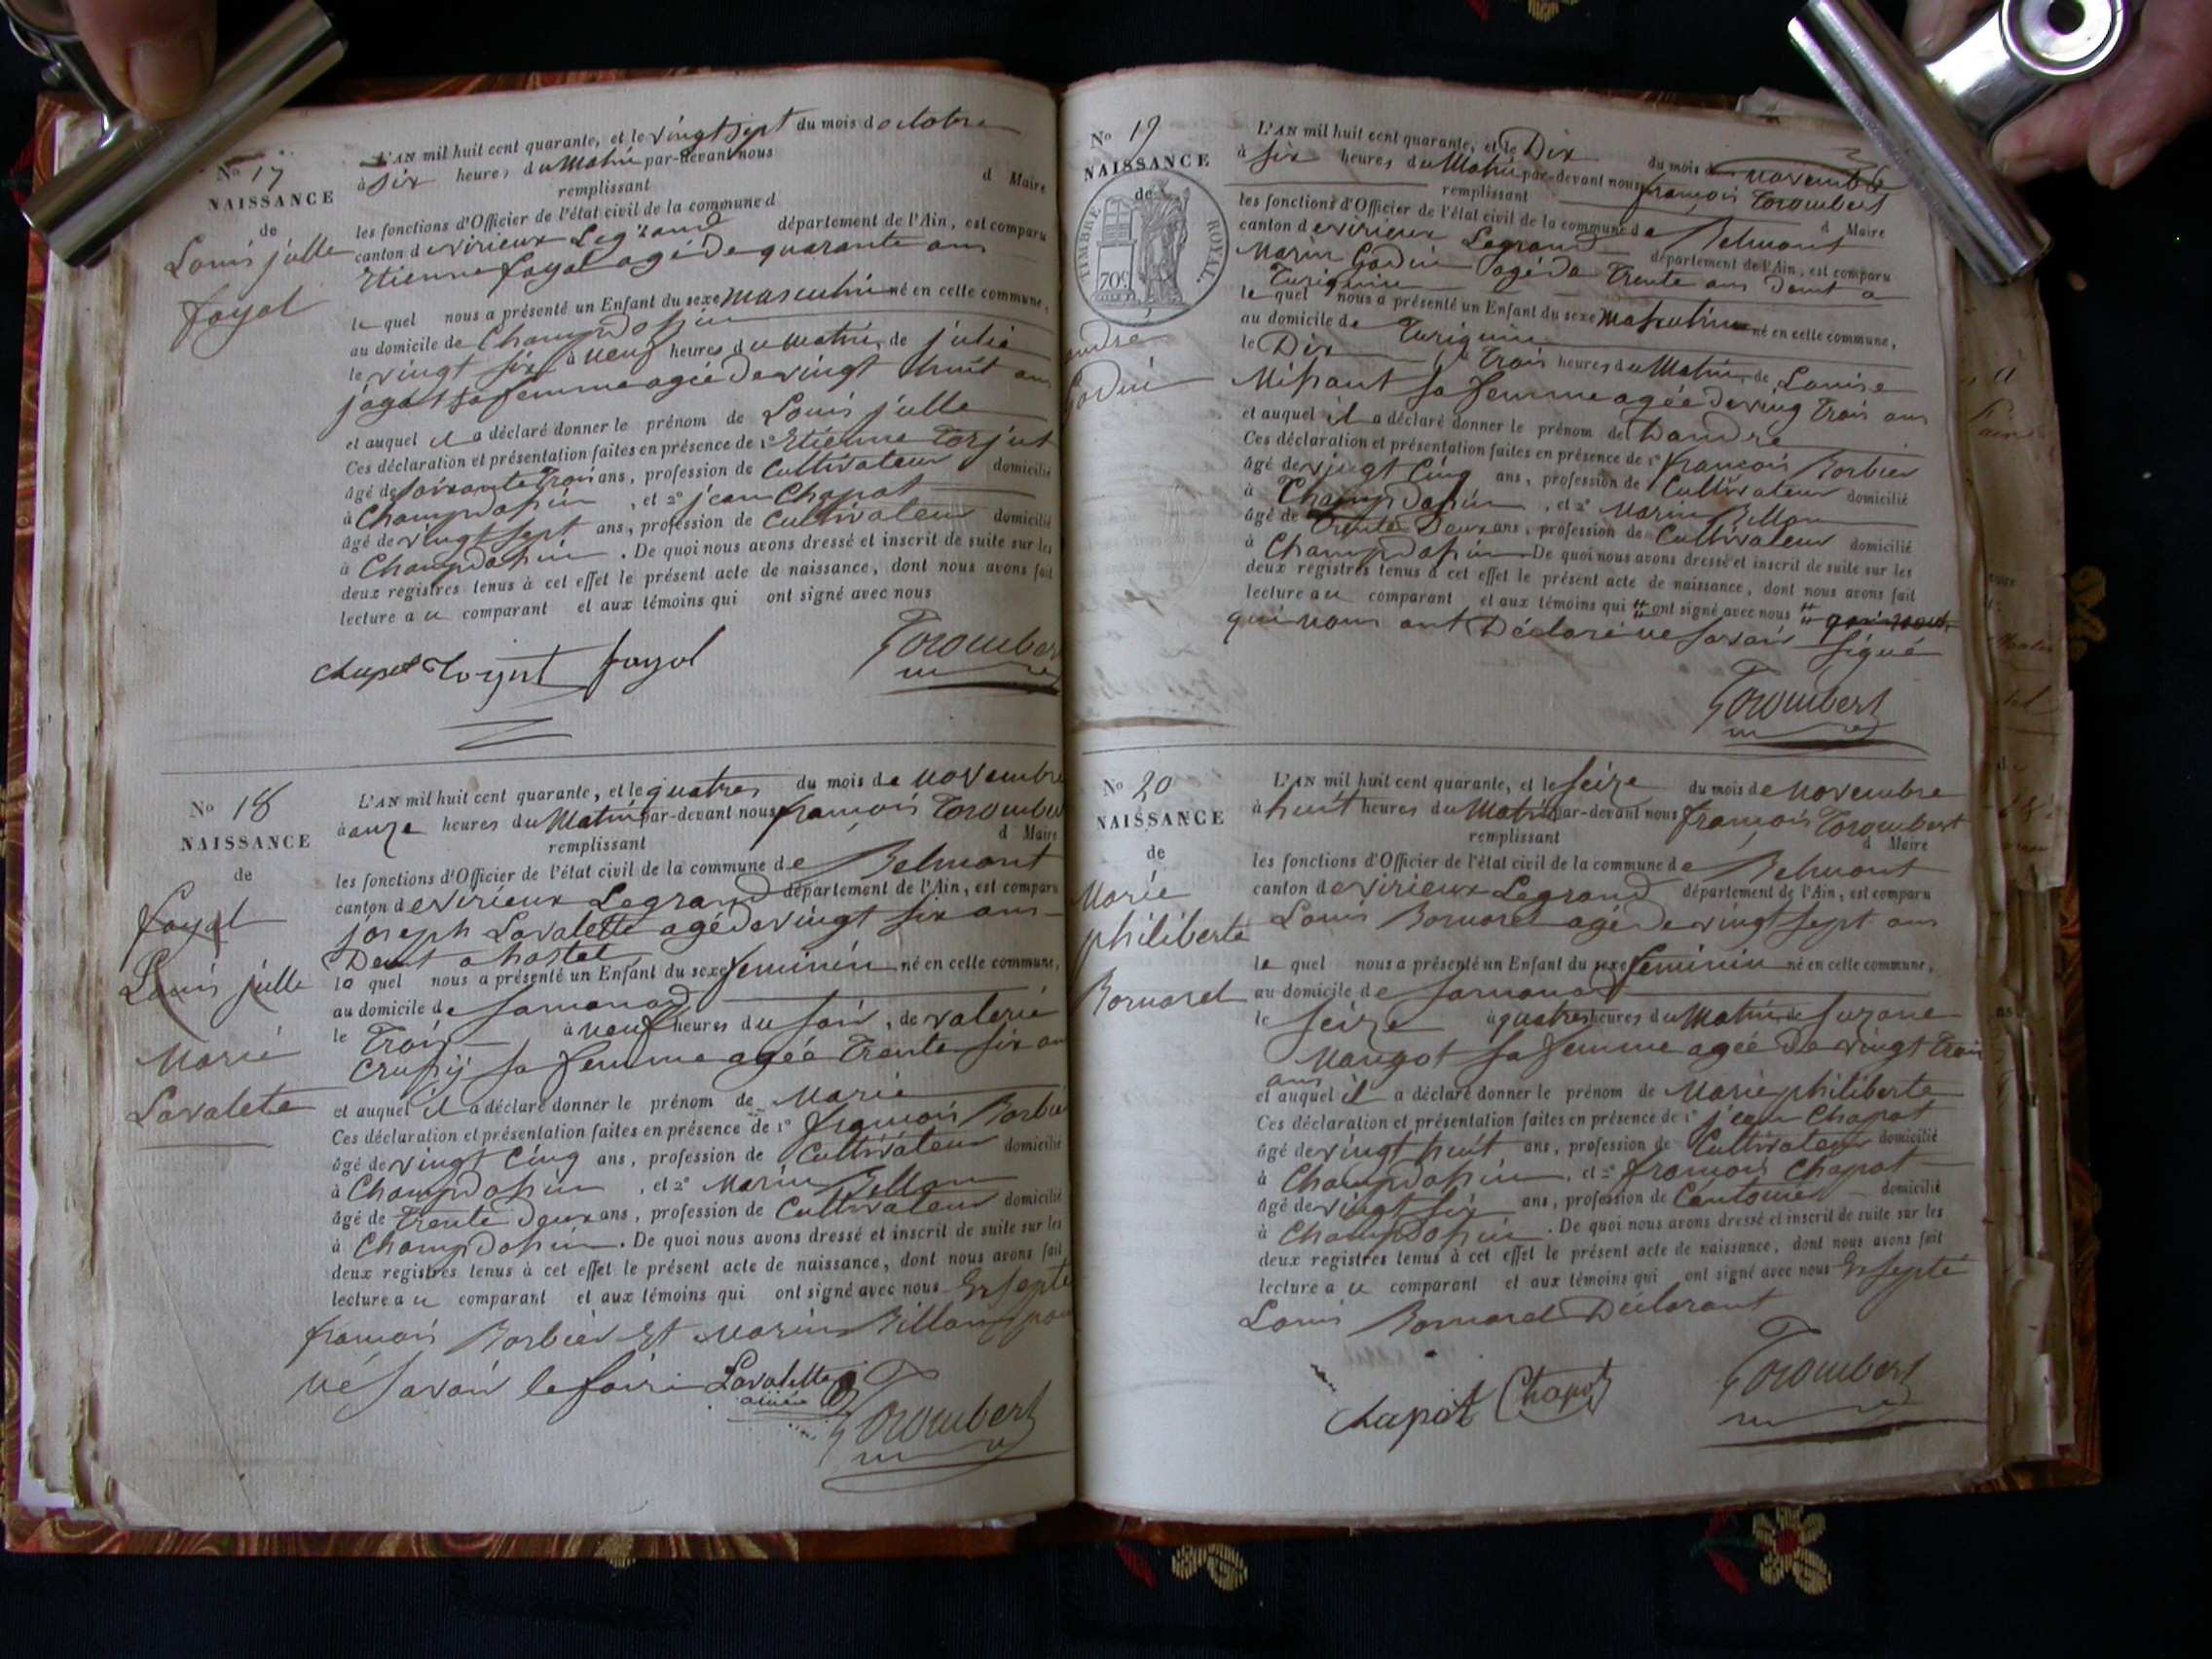 No 17
NAISSANCE
de
Louis julle
fayol
L'AN mil huit cent quarante, et le vingt sept du mois d octobre
à six heures du Matin par-devant nous
d Maire
remplissant
les fonctions d'Officier de l'état civil de la commune d
canton de virieux Legrand département de l'Ain, est comparu
Etienne fayol agé de quarante ans
le quel nous a présenté un Enfant du sexe masculin né en cette commune,
au domicile de Champdossin
le vingt six à neuf heures du matin, de julie
sa femme agée de vingt huit ans
et auquel il a déclaré donner le prénom de Louis julle
Ces déclaration et présentation faites en présence de 1º Etienne Torjut
âgé de soixante trois ans, profession de Cultivateur domicilié
à Champdossin, et 2º jean Chapot
âgé de vingt sept ans, profession de Cultivateur domicilié
à Champdossin. De quoi nous avons dressé et inscrit de suite sur les
deux registres tenus à cet effet le présent acte de naissance, dont nous avons fait
lecture au comparant et aux témoins qui ont signé avec nous
Chapot Torjut fayol Trombert
No 18
NAISSANCE
de
fayol
Louis julle
Marie
Lavalete
L'AN mil huit cent quarante, et le quatres du mois de novembre
à onze heures du Matin par-devant nous françois Trombert
d Maire
remplissant
les fonctions d'Officier de l'état civil de la commune de Belmont
canton de virieux Legrand département de l'Ain, est comparu
joseph Lavalette agé de vingt six ans
Dent a hostel
le quel nous a présenté un Enfant du sexe feminin né en cette commune,
au domicile de Samonod
le Trois à neuf heures du soir, de valerie
sa femme agée Trente six ans
et auquel il a déclaré donner le prénom de Marie
Ces déclaration et présentation faites en présence de 1º françois Borbier
âgé de vingt Cinq ans, profession de Cultivateur domicilié
à Champdossin, et 2º Marin Billon
âgé de Trente Deux ans, profession de Cultivateur domicilié
à Champdossin. De quoi nous avons dressé et inscrit de suite sur les
deux registres tenus à cet effet le présent acte de naissance, dont nous avons fait
lecture au comparant et aux témoins qui ont signé avec nous Exsepté
françois Borbier Et Marin Billon pour
ne savoir le faire Lavalette
ainée Trombert
No 19
NAISSANCE
de
TIMBRE ROYAL
70c
andré
Godin
L'AN mil huit cent quarante, et le Dix du mois de novembre
à six heures du Matin par-devant nous françois Trombert
remplissant d Maire
les fonctions d'Officier de l'état civil de la commune de Belmont
canton de virieux Legrand département de l'Ain, est comparu
Marin Godin agé de Trente ans Dent a
Turignin
le quel nous a présenté un Enfant du sexe Masculin né en cette commune,
au domicile de Turignin
le Dix à Trois heures du Matin, de Louise
Mipant sa femme agée de ving Trois ans
et auquel il a déclaré donner le prénom de Dandré
Ces déclaration et présentation faites en présence de 1º françois Borbier
âgé de vingt Cinq ans, profession de Cultivateur domicilié
à Champdossin, et 2º Marin Billon
âgé de Trente Deux ans, profession de Cultivateur domicilié
à Champdossin De quoi nous avons dressé et inscrit de suite sur les
deux registres tenus à cet effet le présent acte de naissance, dont nous avons fait
lecture au comparant et aux témoins qui ont signé avec nous
qui nous ont Déclaré ne savoir signé
Trombert
No 20
NAISSANCE
de
Marie
philiberte
Bornarel
L'AN mil huit cent quarante, et le seize du mois de Novembre
à huit heures du Matin par-devant nous françois Trombert
remplissant d Maire
les fonctions d'Officier de l'état civil de la commune de Belmont
canton de virieux Legrand département de l'Ain, est comparu
Louis Bornarel agé de vingt sept ans
le quel nous a présenté un Enfant du sexe feminin né en cette commune,
au domicile de Samonod
le seize à quatres heures du Matin, de suzane
Mangot sa femme agée de vingt Trois
ans
et auquel il a déclaré donner le prénom de Marie philiberte
Ces déclaration et présentation faites en présence de 1º jean Chapot
âgé de vingt huit ans, profession de Cultivateur domicilié
à Champdossin, et 2º françois Chapot
âgé de vingt six ans, profession de Cantonier domicilié
à Champdossin. De quoi nous avons dressé et inscrit de suite sur les
deux registres tenus à cet effet le présent acte de naissance, dont nous avons fait
lecture au comparant et aux témoins qui ont signé avec nous Exsepté
Louis Bornarel Déclarant
Chapot Chapot Trombert